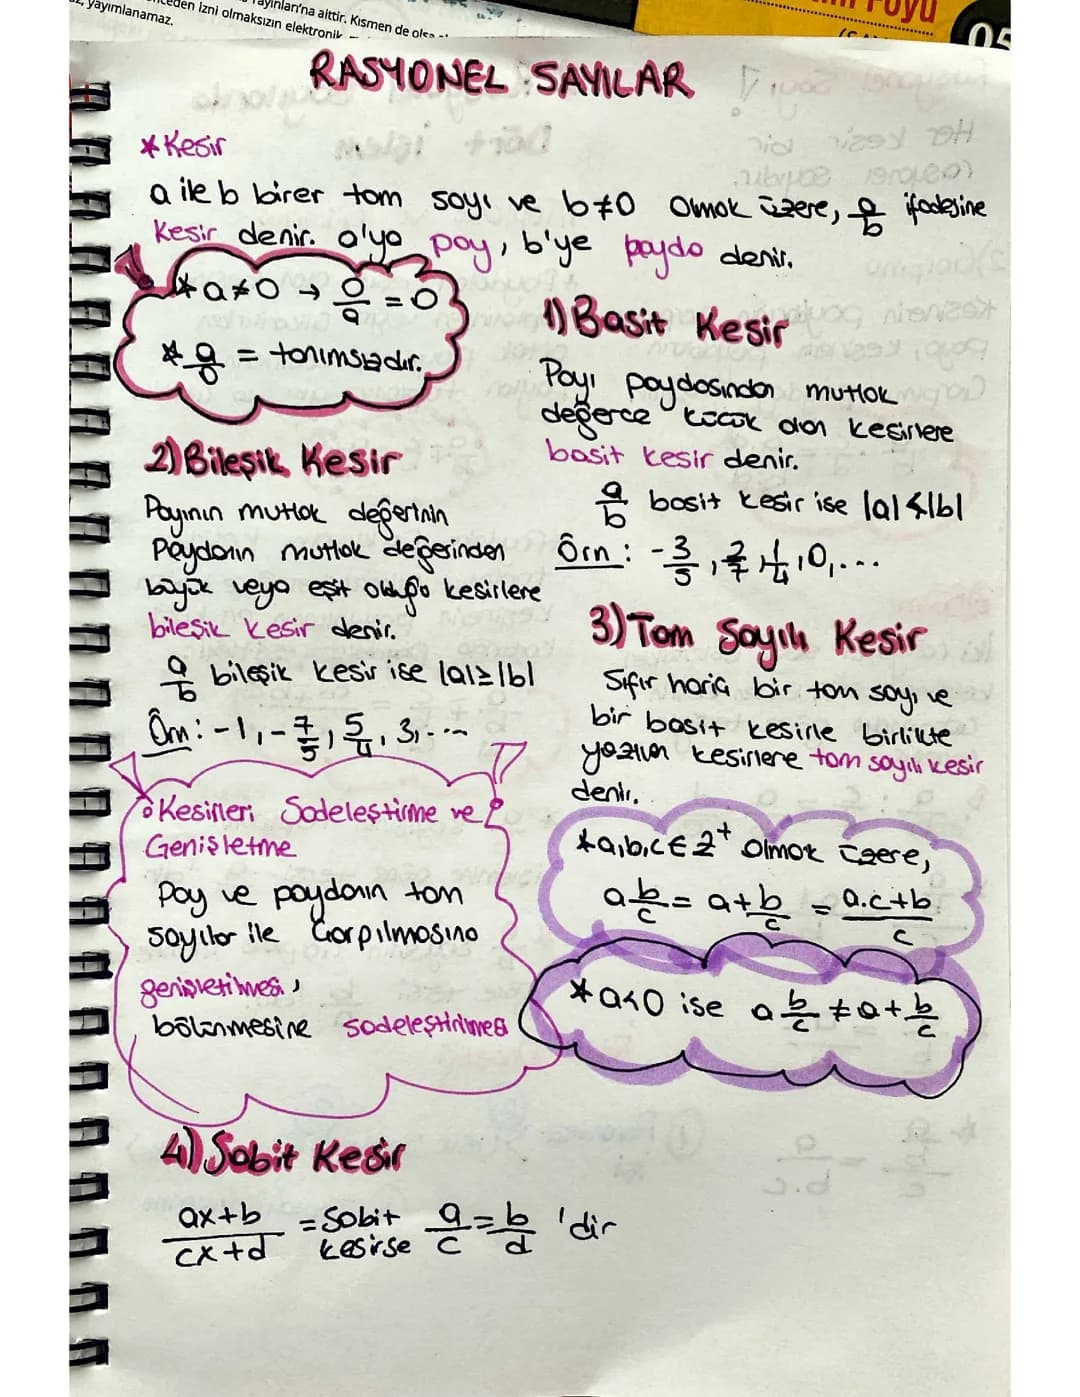 yayımlanamaz.
izni olmaksızın elektronik
Yayınları'na aittir. Kısmen de olsa
Föyü
05
RASYONEL SAYILAR
* Kesir
a ile b birer tam sayı ve b≠0 olmak üzere, a/b ifadesine
kesir denir. a'ya pay, b'ye payda denir.
* a≠0 → 0/a = 0
* a/0 = tanımsızdır.
1) Basit Kesir
Payı paydasından mutlak
değerce küçük olan kesirlere
basit kesir denir.
a/b basit kesir ise |a|<|b|
Örn: -3/5, 2/7, 1/4, 0, ...
2) Bileşik Kesir
Payının mutlak değerinin
Paydanın mutlak değerinden
büyük veya eşit olduğu kesirlere
bileşik kesir denir.
a/b bileşik kesir ise |a|≥|b|
Örn: -1, -7/5, 5/4, 3, ...
3) Tam Sayılı Kesir
Sıfır hariç bir tam sayı ve
bir basit kesirle birlikte
yazılan kesirlere tam sayılı kesir
denir.
* a,b,c ∈ Z⁺ olmak üzere,
a b/c = a + b/c = a.c+b/c
* a<0 ise a b/c ≠ a + b/c
Kesirleri Sadeleştirme ve
Genişletme
Pay ve paydanın tam
sayılar ile çarpılmasına
genişletilmesi,
bölünmesine sadeleştirilmesi
4) Sabit Kesir
ax+b/cx+d = Sabit kesirse a/c = b/d 'dir